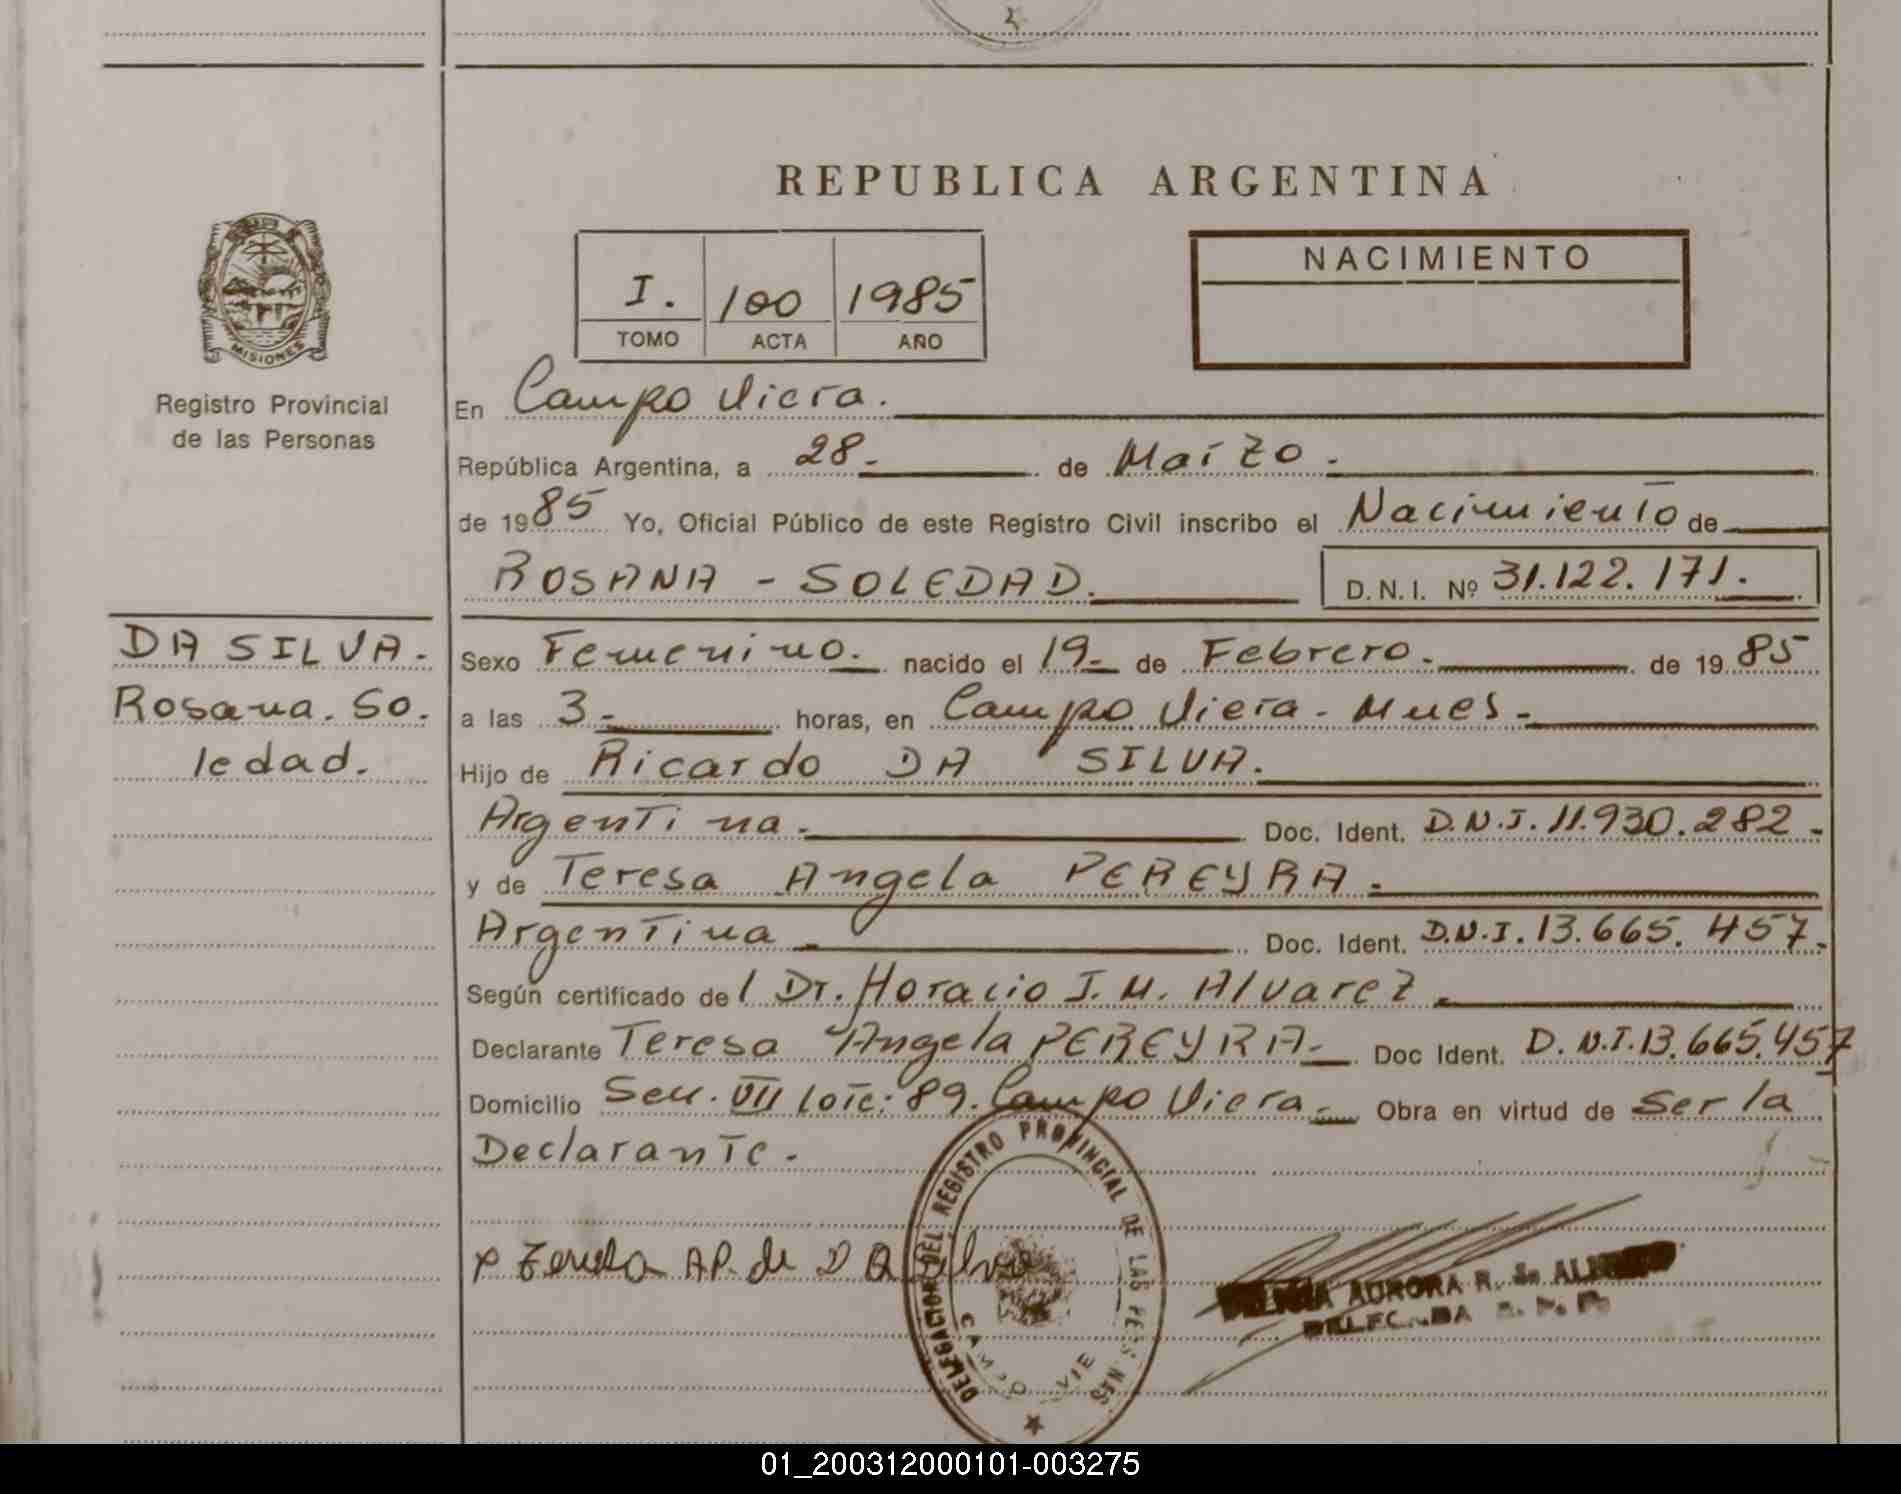 REPUBLICA ARGENTINA
I. 100 1985
TOMO ACTA AÑO
NACIMIENTO
MISIONES
Registro Provincial
de las Personas
En Campo Viera.
República Argentina, a 28- de Marzo.-
de 1985 Yo, Oficial Público de este Registro Civil inscribo el Nacimiento de
ROSANA - SOLEDAD. D.N.I. Nº 31.122.171.
DA SILVA.
Rosana. So.
ledad.
Sexo Femenino. nacido el 19- de Febrero.- de 1985
a las 3- horas, en Campo Viera - Mnes-
Hijo de Ricardo DA SILVA.
Argentina.- Doc. Ident. D.N.I. 11.930.282-
y de Teresa Angela PEREYRA.-
Argentina - Doc. Ident. D.N.I. 13.665.457-
Según certificado de / Dr. Horacio I. M. Alvarez.
Declarante Teresa Angela PEREYRA- Doc Ident. D.N.I. 13.665.457
Domicilio Secc. VII lote: 89. Campo Viera.- Obra en virtud de Ser la
Declarante.
DELEGACION DEL REGISTRO PROVINCIAL DE LAS PERSONAS
CAMPO VIE
x Teresa A P. de D a Silva
AURORA R. de
01_200312000101-003275